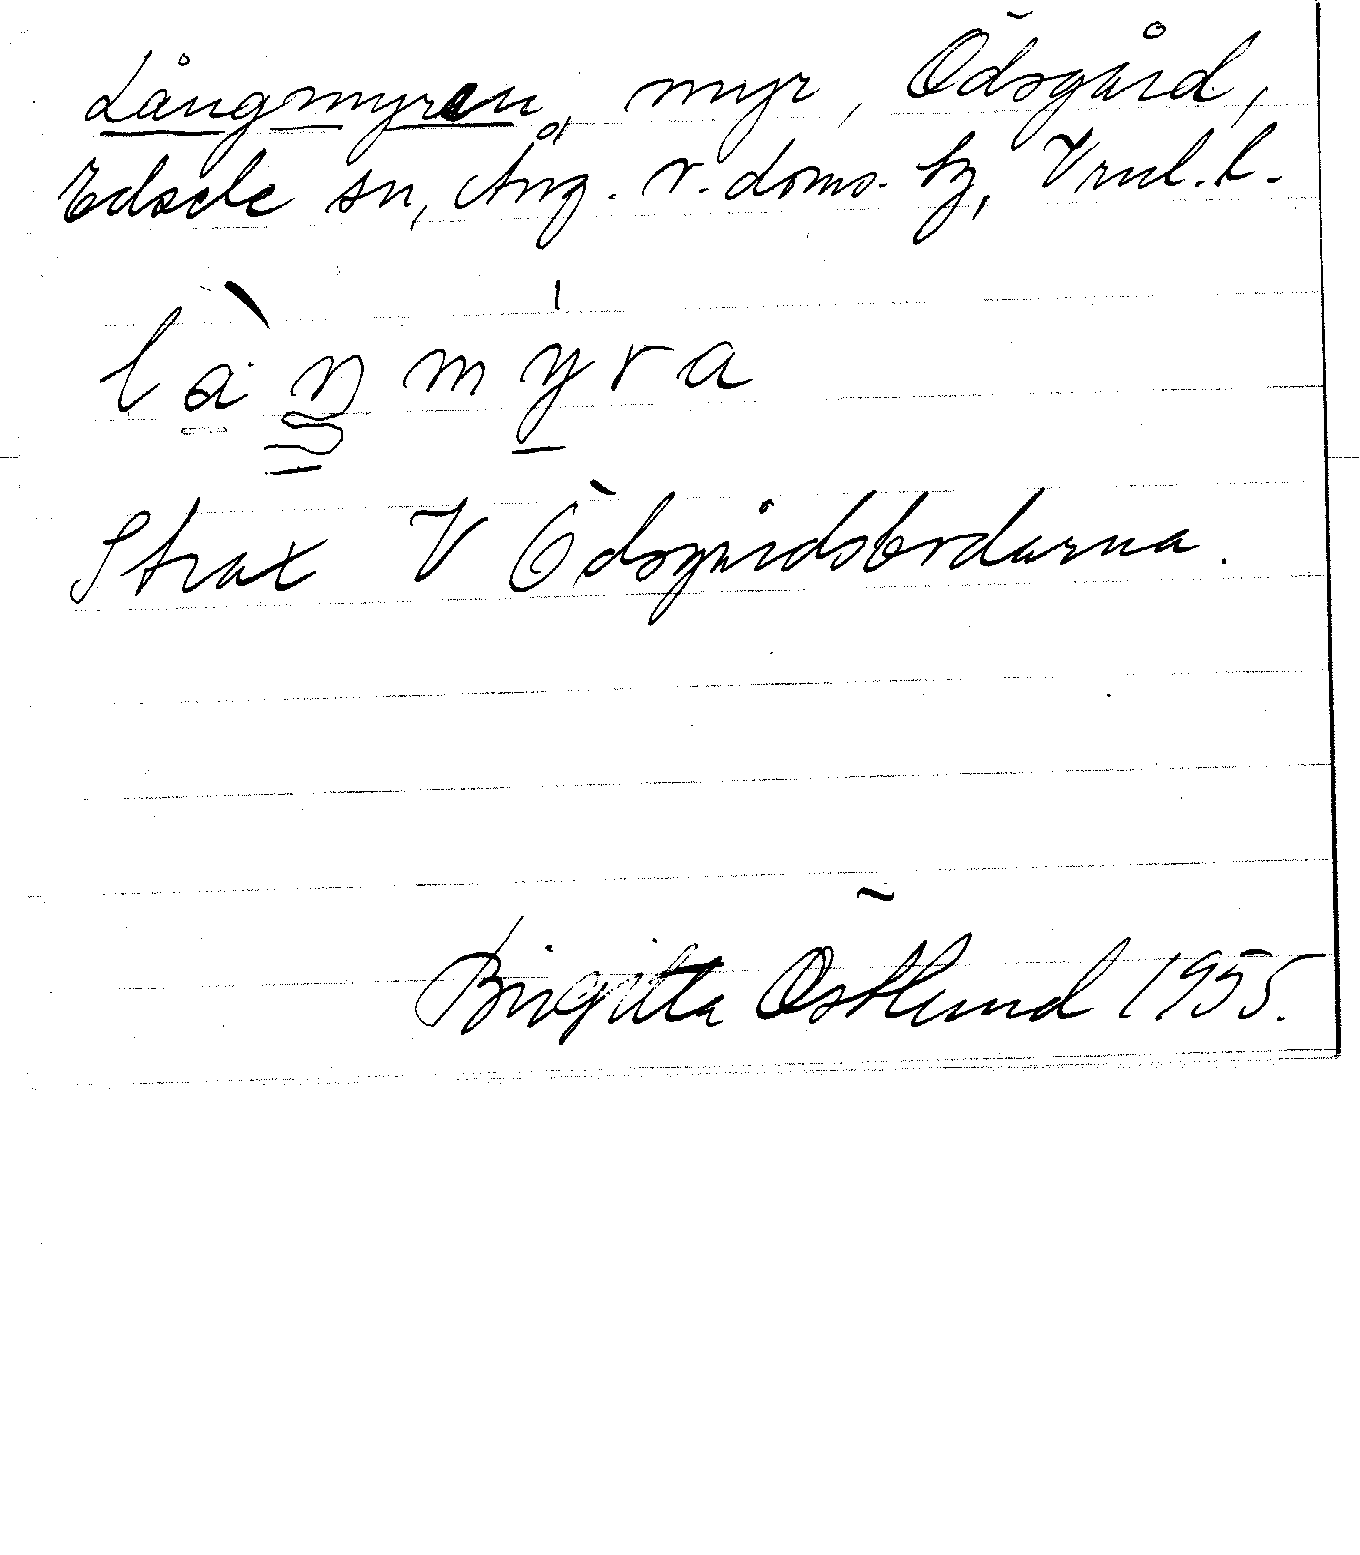 Långmyren, myr, Ödsgård,
Edsele sn, Ång. v. doms. tg, Vnl. l.
làŋmyra
Strax V Ödsgårdsbodarna.
Birgitta Östlund 1955.